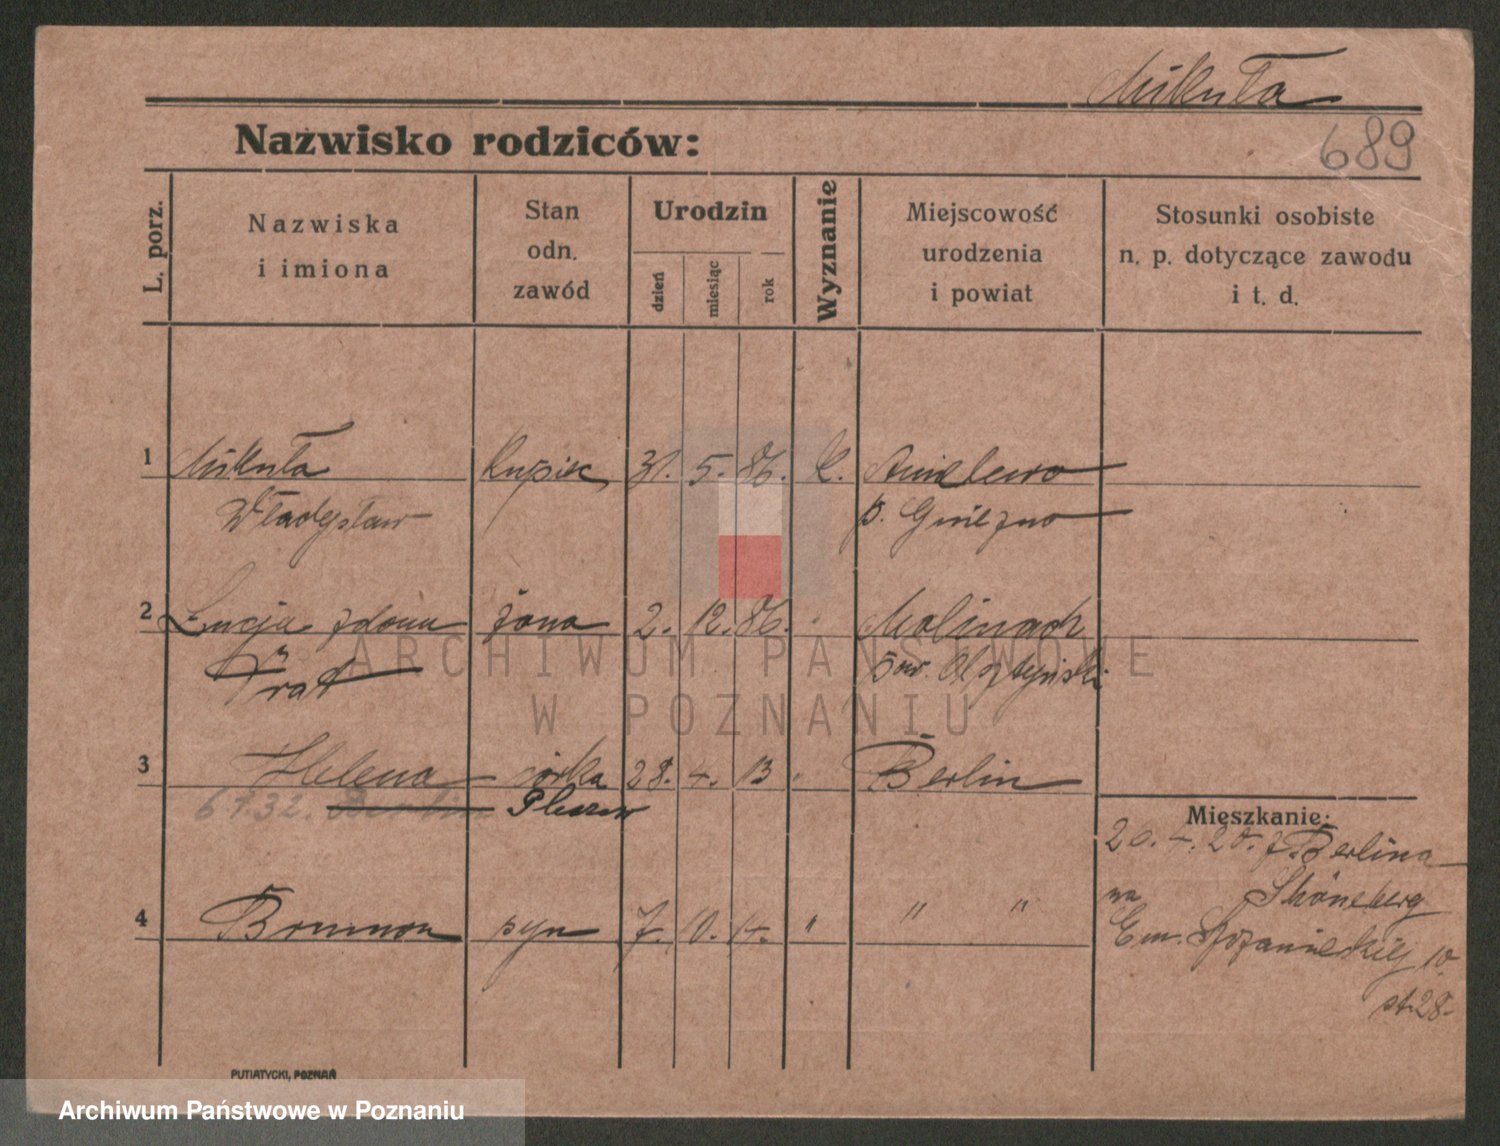 Mikuła
Nazwisko rodziców:
689
L. porz.
Nazwiska
i imiona
Stan
odn.
zawód
Urodzin
dzień
miesiąc
rok
Wyznanie
Miejscowość
urodzenia
i powiat
Stosunki osobiste
n. p. dotyczące zawodu
i t. d.
1 Mikuła Kupiec 31. 5. 86. K.
Władysław p. Gniezno
2 Łucja z domu żona 2. 12. 86. "
pow. Olsztyński
ARCHIWUM PAŃSTWOWE
W POZNANIU
3 Helena córka 28. 4. 13 " Berlin
32. Berlin Pleszew
Mieszkanie:
20. 4. 20. z Berlina
4 Brunon syn 7. 10. 14. " " "
na Shöneberg
10
st. 28.
PUTIATYCKI, POZNAŃ
Archiwum Państwowe w Poznaniu